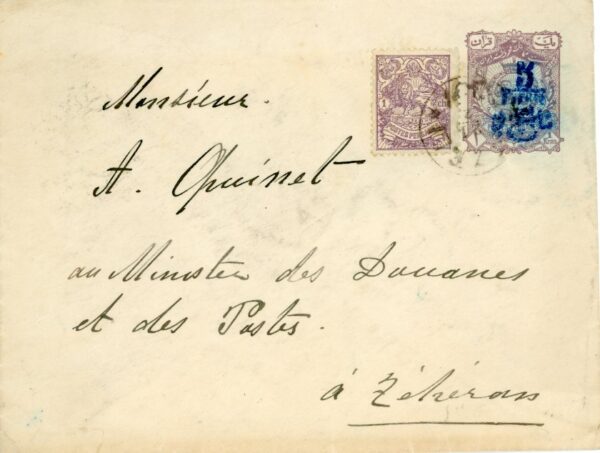 یک قران
5
1
Monsieur.
A. Quinet
au Ministère des Douanes
et des Postes.
à Téhéran